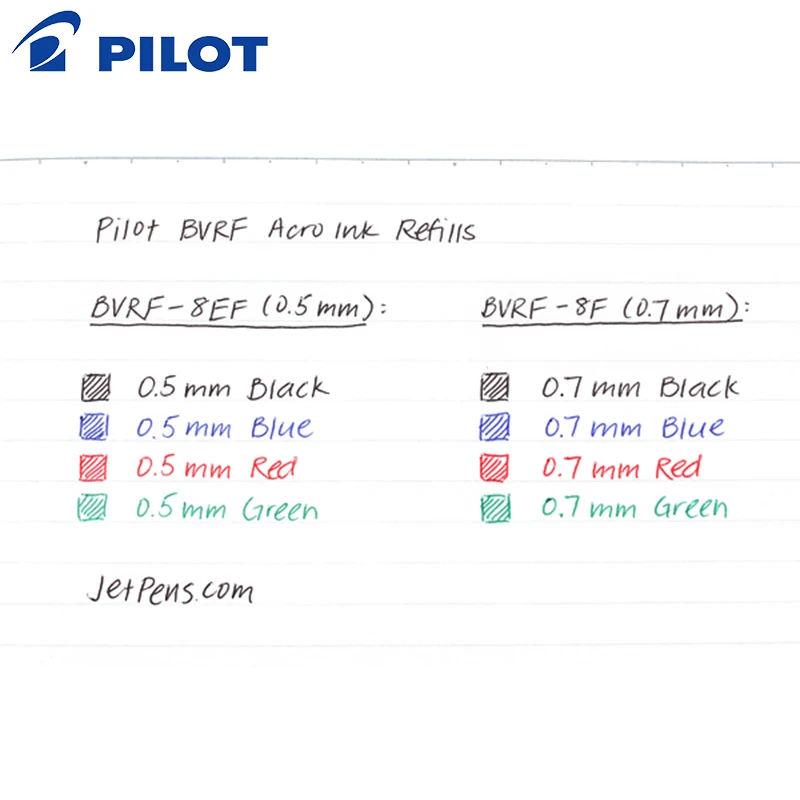 PILOT
Pilot BVRF Acro Ink Refills
BVRF-8EF (0.5 mm):
0.5 mm Black
0.5 mm Blue
0.5 mm Red
0.5 mm Green
BVRF-8F (0.7 mm):
0.7 mm Black
0.7 mm Blue
0.7 mm Red
0.7 mm Green
JetPens.com